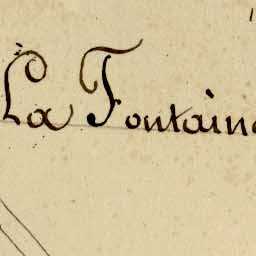 La Fontaine